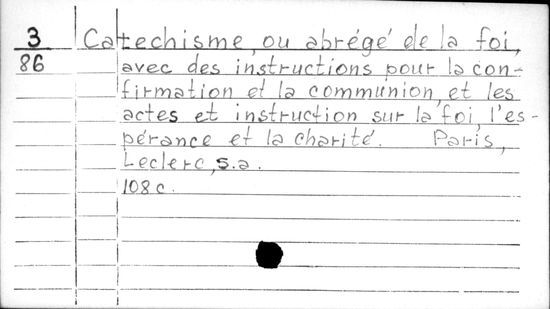 3 Catechisme, ou abrégé de la foi,
86 avec des instructions pour la con-
firmation et la communion, et les
actes et instruction sur la foi, l'es-
pérance et la charité. Paris,
Leclerc, s.a.
108 c.